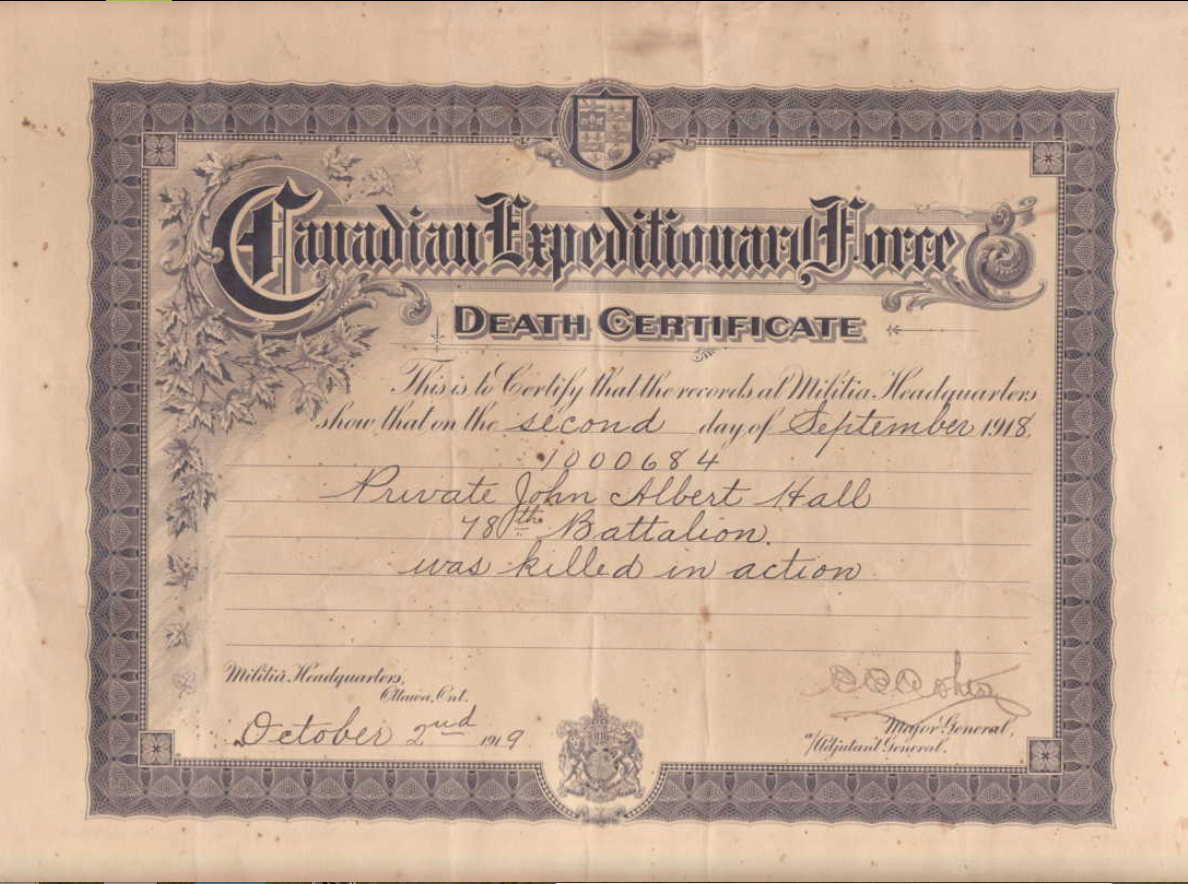 Canadian Expeditionary Force
DEATH CERTIFICATE
This is to Certify that the records at Militia Headquarters
show that on the second day of September 1918,
1000684
Private John Albert Hall
78th Battalion.
was killed in action
Militia Headquarters,
Ottawa, Ont.
October 2nd 1919
Major General,
a/Adjutant General.